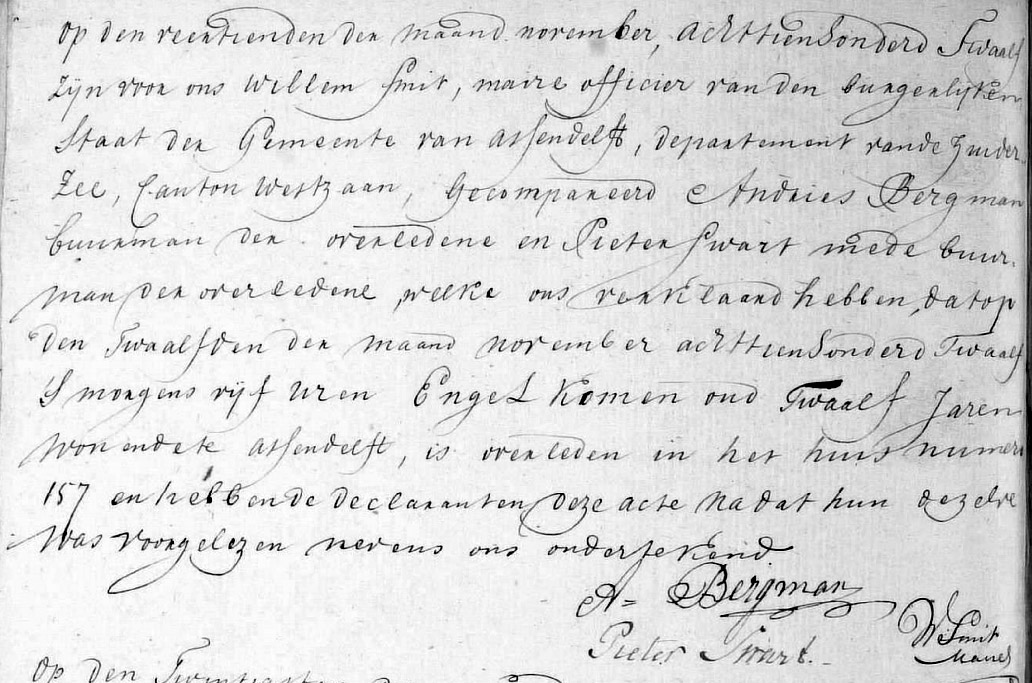 Op den veertienden der maand november, achttienhonderd Twaalf
Zijn voor ons Willem Smit, maire officier van den burgerlijken
Staat der Gemeente van Assendelft, departement vande Zuider
Zee, Canton Westzaan, Gecompareerd Andries Bergman
buurman der overledene en Pieter Swart mede buur-
man der overledene welke ons verklaard hebben, dat op
den Twaalfden der maand november achttienhonderd Twaalf
S morgens vijf uren Engel Komen oud Twaalf Jaren
wonende te Assendelft, is overleden in het huis numero
157 en hebben de declaranten deze acte na dat hun dezelve
was voorgelezen nevens ons ondertekend
A= Bergman
Pieter Swart.-
W Smit
Maire
Op den